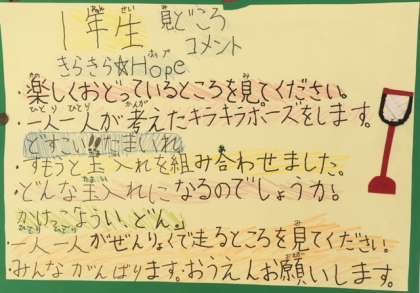 1年生 見どころ
コメント
きらきら☆Hope
・楽しくおどっているところを見てください。
・一人一人が考えたキラキラポーズをします。
どすこい!!たまいれ
・すもうと玉入れを組み合わせました。
・どんな玉入れになるのでしょうか!
かけっこようい、どん。
・一人一人がぜんりょくで走るところを見てください。
・みんながんばります。おうえんお願いします。